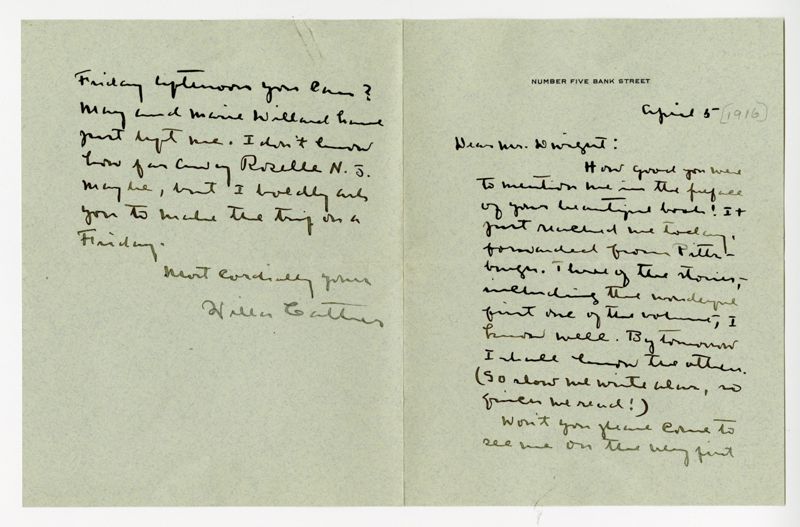 NUMBER FIVE BANK STREET
April 5 [1916]
Dear Mr. Dwight:
How good you were
to mention me in the preface
of your beautiful book! It
just reached me today,
forwarded from Pitts-
burgh. Three of the stories,
including the wonderful
first one of the volume, I
know well. By tomorrow
I shall know the others.
(So slow we write alas, so
quick we read!)
Won't you please come to
see me on the very first
Friday afternoon you can?
May and Marie Willard have
just left me. I don't know
how far away Roselle N.J.
may be, but I boldly ask
you to make the trip on a
Friday.
Most cordially yours
Willa Cather